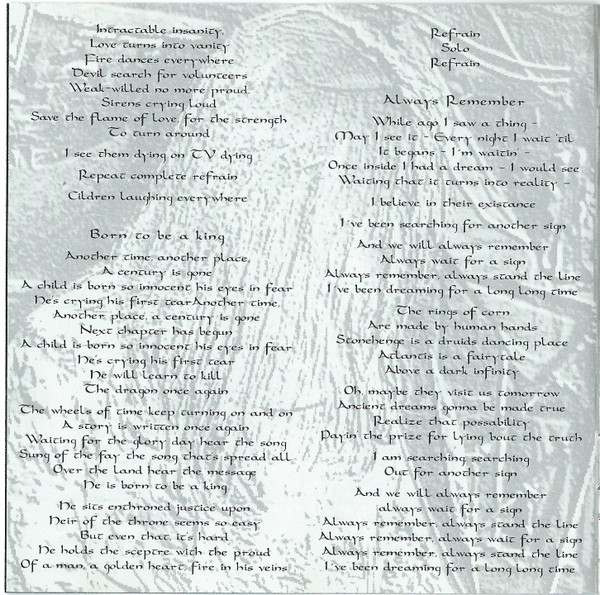 Intractable insanity,
Love turns into vanity
Fire dances everywhere
Devil search for volunteers
Weak-willed no more proud.
Sirens crying loud
Save the flame of love, for the strength
To turn around
I see them dying on TV dying
Repeat complete refrain
Cildren laughing everywhere
Born to be a king
Another time, another place,
A century is gone
A child is born so innocent his eyes in fear
He's crying his first tearAnother time,
Another place, a century is gone
Next chapter has begun
A child is born so innocent his eyes in fear
He's crying his first tear
He will learn to kill
The dragon once again
The wheels of time keep turning on and on
A story is written once again
Waiting for the glory day hear the song
Sung of the fay the song that's spread all
Over the land hear the message
He is born to be a king
He sits enthroned justice upon
Heir of the throne seems so easy
But even that, it's hard
He holds the sceptre with the proud
Of a man, a golden heart, fire in his veins
Refrain
Solo
Refrain
Always Remember
While ago I saw a thing -
May I see it - Every night I wait 'til
It begans - I'm waitin' -
Once inside I had a dream - I would see
Waiting that it turns into reality -
I believe in their existance
I've been searching for another sign
And we will always remember
Always wait for a sign
Always remember, always stand the line
I've been dreaming for a long long time
The rings of corn
Are made by human hands
Stonehenge is a druids dancing place
Atlantis is a fairytale
Above a dark infinity
Oh, maybe they visit us tomorrow
Ancient dreams gonna be made true
Realize that possability
Payin the prize for lying 'bout the truth
I am searching searching
Out for another sign
And we will always remember
always wait for a sign
Always remember, always stand the line
Always remember, always wait for a sign
Always remember, always stand the line
I've been dreaming for a long long time